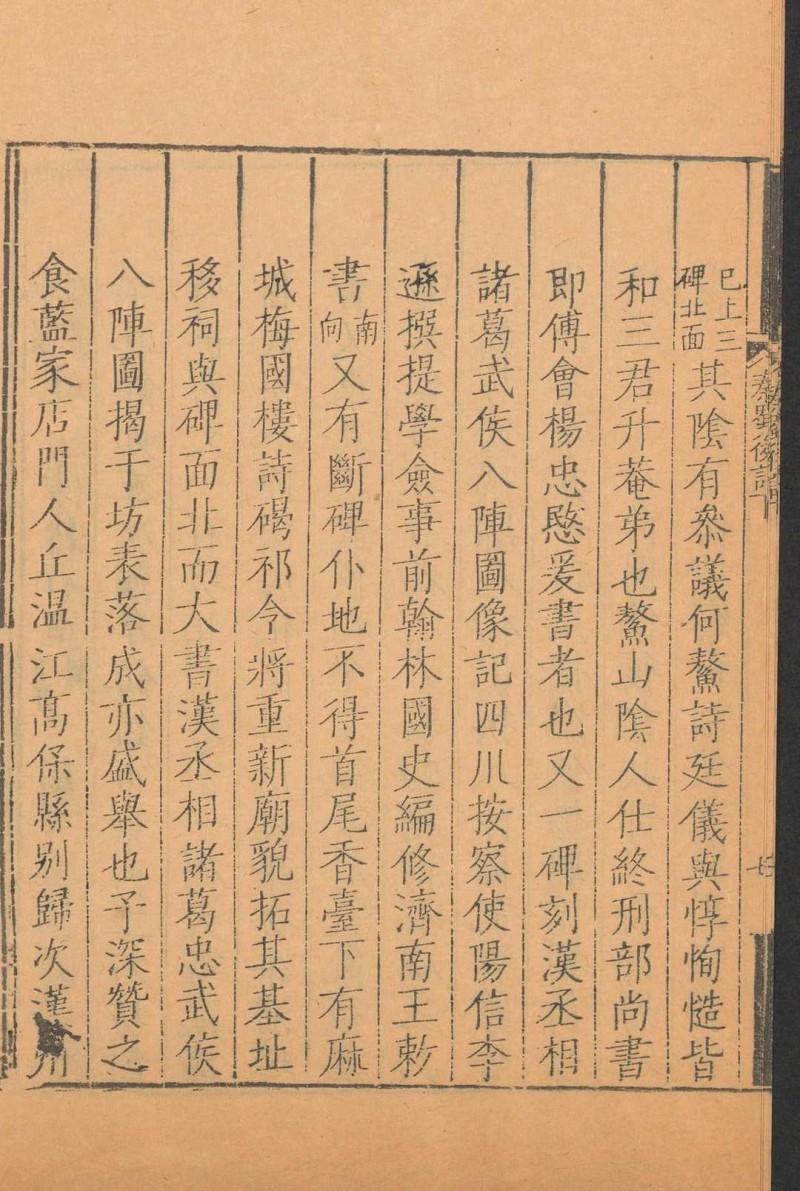 秦蜀後記
七
已上三碑北面其陰有叅議何鰲詩廷儀與惇恂慥皆
和三君升菴弟也鰲山陰人仕終刑部尚書
即傅會楊忠愍爰書者也又一碑刻漢丞相
諸葛武侯八陣圖像記四川按察使陽信李
遜撰提學僉事前翰林國史編修濟南王敕
書南向又有斷碑仆地不得首尾香臺下有麻
城梅國樓詩碣祁令將重新廟貌拓其基址
移祠與碑面北而大書漢丞相諸葛忠武侯
八陣圖揭于坊表落成亦盛舉也予深贊之
食藍家店門人丘温江髙保縣别歸次漢州